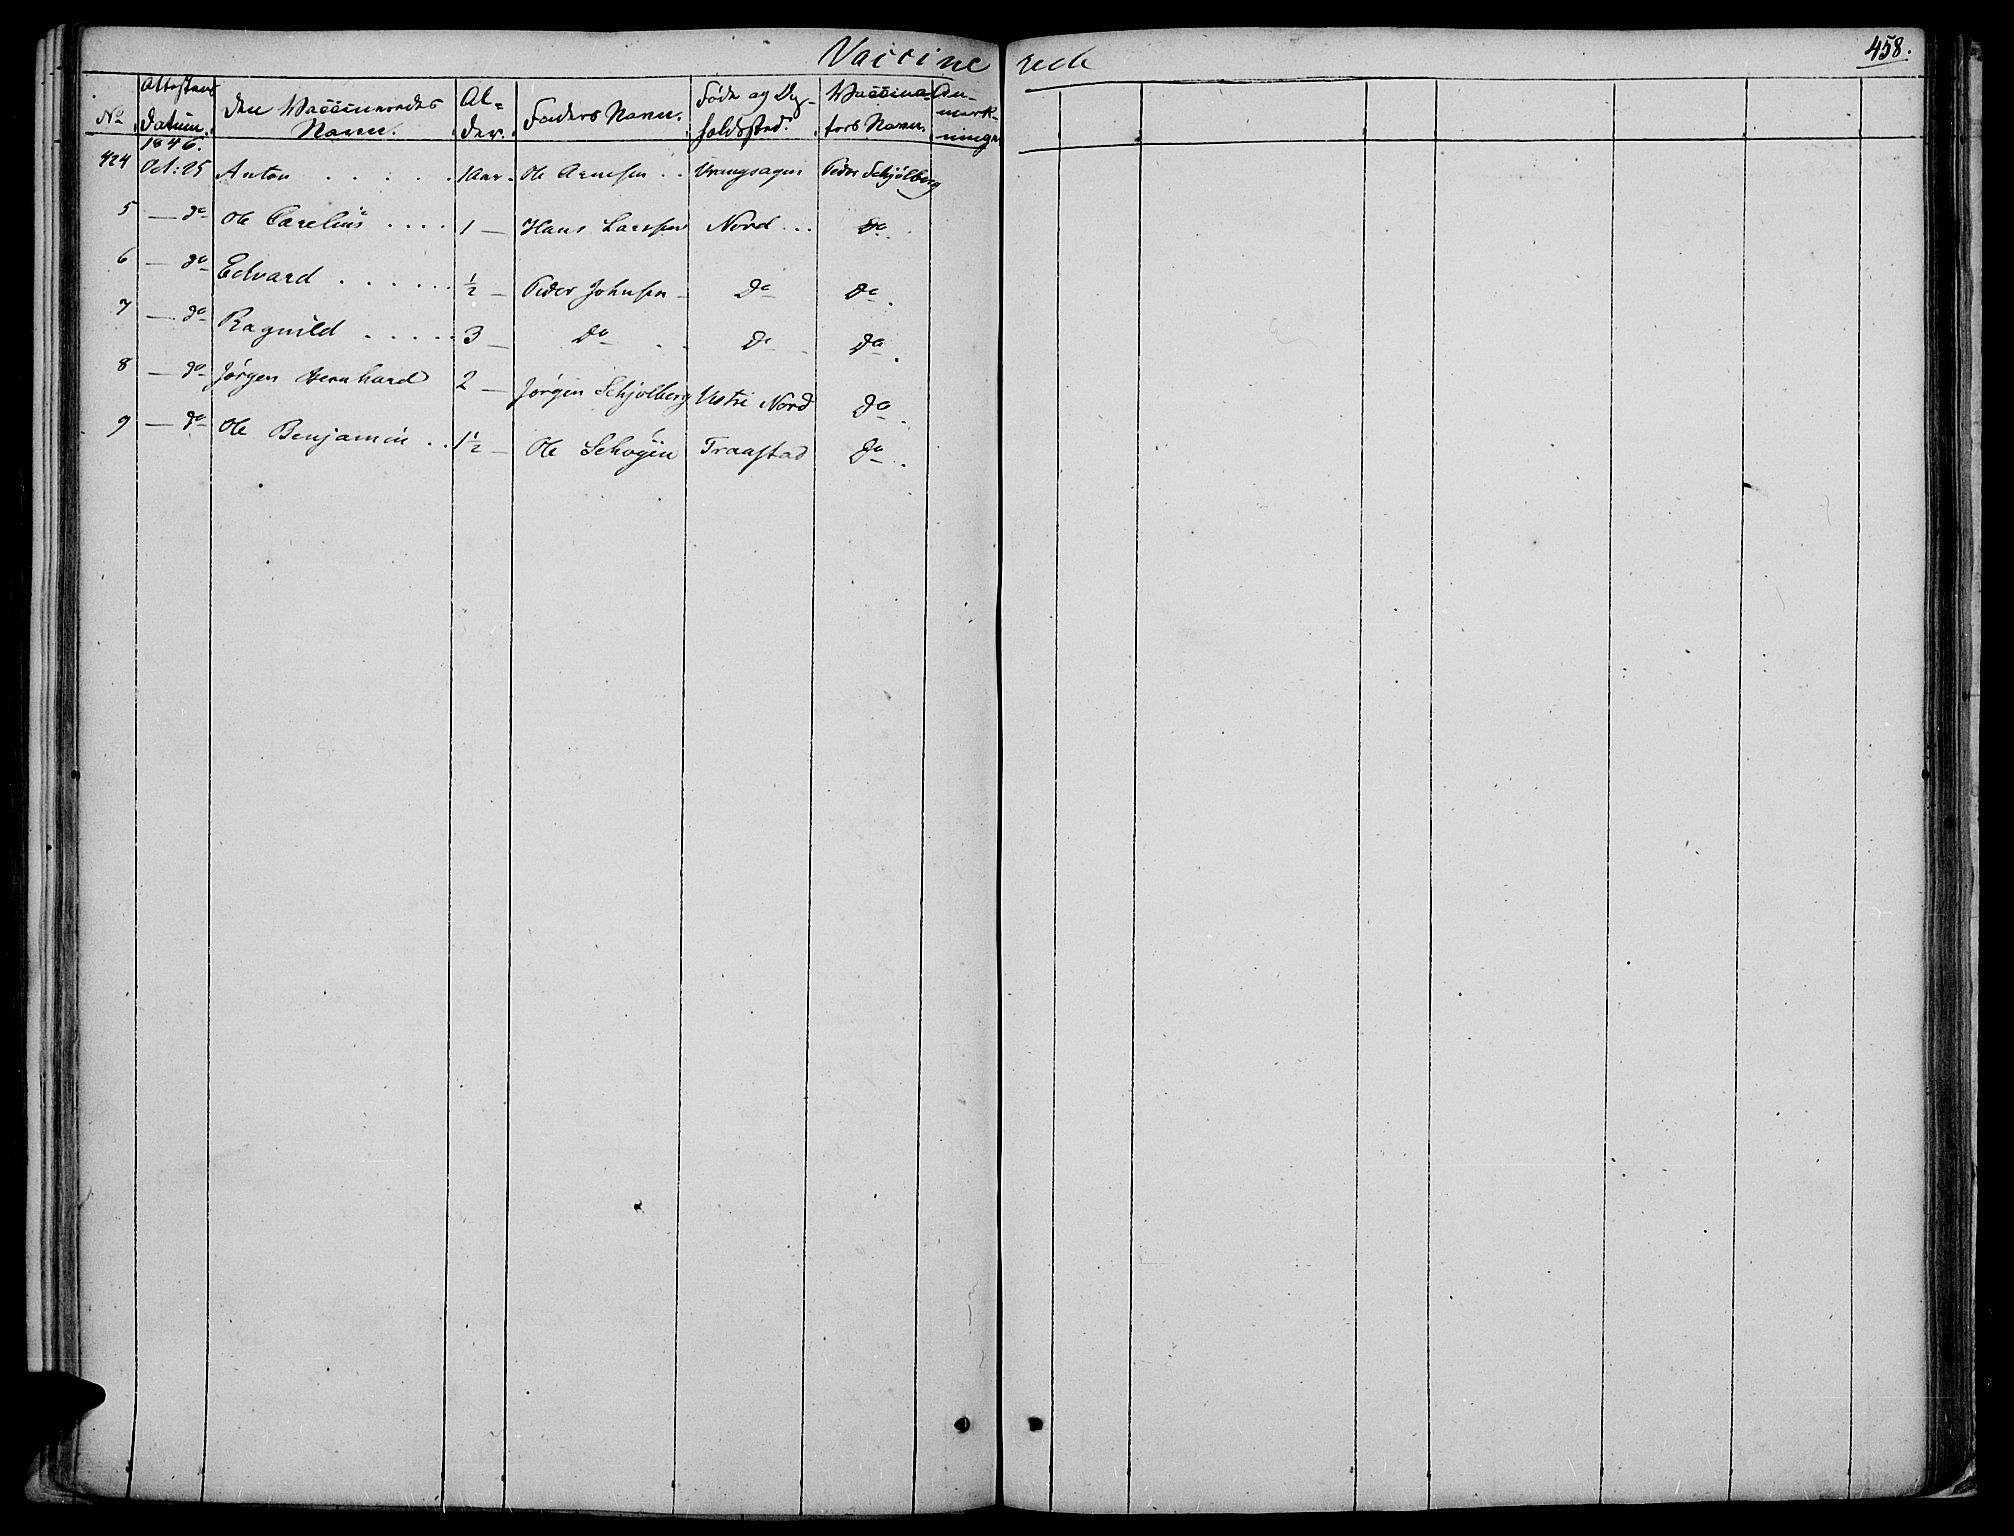 Vaccinerede
458.
No | Attestens Datum. | Den Vaccineredes Navn. | Alder. | Faders Navn. | Føde og Opholdssted. | Vaccinators Navn. | Anmærkninger
1846.
424 | Oct: 25 | Anton . . . . . | 1 Aar. | Ole Arnesen . . | Vrangsagen | Peder Schjølberg
5 | — do | Ole Carelius . . . . | 1 — | Hans Larssen | Nord . . . | Do.
6 | — do | Edvard . . . . . . | ½ — | Peder Johnsen — | Do | Do.
7 | — do | Ragnild . . . . . | 3 — | Do . . | Do . | Do.
8 | — do | Jørgen Bernhard | 2 — | Jørgen Schjølberg | Vestre Nord | Do.
9 | — do | Ole Benjamin . . | 1½ — | Ole Schøgen | Traastad | Do.